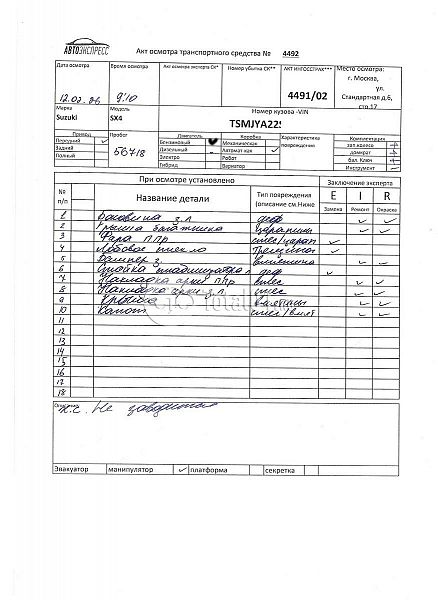 АВТОЭКСПРЕСС
Акт осмотра транспортного средства № 4492
Дата осмотра
Время осмотра
Акт осмотра эксперта СК*
Номер убытка СК**
АКТ ИНГОССТРАХ***
Место осмотра:
г. Москва,
ул.
Стандартная д.6,
стр.17
12.02.26 9:10
4491/02
Марка
Модель
Номер кузова -VIN
Suzuki
SX4
TSMJYA22S
Привод
Пробег
Двигатель
Коробка
Характеристика повреждения
Комплектация
Передний
Бензиновый
Механическая
зап.колесо
Задний
56718
Дизельный
Автомат как
домкрат
Полный
Электро
Робот
бал. Ключ
Гибрид
Вариатор
Инструмент
При осмотре установлено
Заключение эксперта
№ п/п
Название детали
Тип повреждения (описание см.Ниже
E I R
Замена Ремонт Окраска
1 Боковина з.л деф
2 Крышка багажника царапины
3 Фара ППр
4 Лобовое стекло
5 Бампер з. вмятина
6 деф
7 Накладка арки ППр
8 Накладка арки з.л.
9 Крыша вмятины
10 Капот
11
12
13
14
15
16
17
18
Total
Описание
Не заводится
Эвакуатор манипулятор платформа секретка